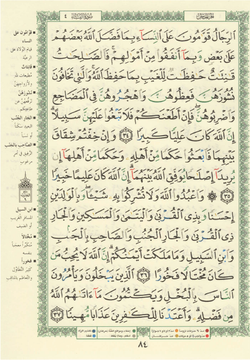 ٱلرِّجَالُ قَوَّٰمُونَ عَلَى ٱلنِّسَآءِ بِمَا فَضَّلَ ٱللَّهُ بَعْضَهُمْ
عَلَىٰ بَعْضٍ وَبِمَآ أَنفَقُوا۟ مِنْ أَمْوَٰلِهِمْ فَٱلصَّٰلِحَٰتُ
قَٰنِتَٰتٌ حَٰفِظَٰتٌ لِّلْغَيْبِ بِمَا حَفِظَ ٱللَّهُ وَٱلَّٰتِى تَخَافُونَ
نُشُوزَهُنَّ فَعِظُوهُنَّ وَٱهْجُرُوهُنَّ فِى ٱلْمَضَاجِعِ
وَٱضْرِبُوهُنَّ فَإِنْ أَطَعْنَكُمْ فَلَا تَبْغُوا۟ عَلَيْهِنَّ سَبِيلًا
إِنَّ ٱللَّهَ كَانَ عَلِيًّا كَبِيرًا ٣٤ وَإِنْ خِفْتُمْ شِقَاقَ
بَيْنِهِمَا فَٱبْعَثُوا۟ حَكَمًا مِّنْ أَهْلِهِۦ وَحَكَمًا مِّنْ أَهْلِهَآ إِن
يُرِيدَآ إِصْلَٰحًا يُوَفِّقِ ٱللَّهُ بَيْنَهُمَآ إِنَّ ٱللَّهَ كَانَ عَلِيمًا خَبِيرًا
٣٥ وَٱعْبُدُوا۟ ٱللَّهَ وَلَا تُشْرِكُوا۟ بِهِۦ شَيْـًٔا وَبِٱلْوَٰلِدَيْنِ
إِحْسَٰنًا وَبِذِى ٱلْقُرْبَىٰ وَٱلْيَتَٰمَىٰ وَٱلْمَسَٰكِينِ وَٱلْجَارِ
ذِى ٱلْقُرْبَىٰ وَٱلْجَارِ ٱلْجُنُبِ وَٱلصَّاحِبِ بِٱلْجَنۢبِ
وَٱبْنِ ٱلسَّبِيلِ وَمَا مَلَكَتْ أَيْمَٰنُكُمْ إِنَّ ٱللَّهَ لَا يُحِبُّ مَن
كَانَ مُخْتَالًا فَخُورًا ٣٦ ٱلَّذِينَ يَبْخَلُونَ وَيَأْمُرُونَ
ٱلنَّاسَ بِٱلْبُخْلِ وَيَكْتُمُونَ مَآ ءَاتَىٰهُمُ ٱللَّهُ
مِن فَضْلِهِۦ وَأَعْتَدْنَا لِلْكَٰفِرِينَ عَذَابًا مُّهِينًا ٣٧
٨٤